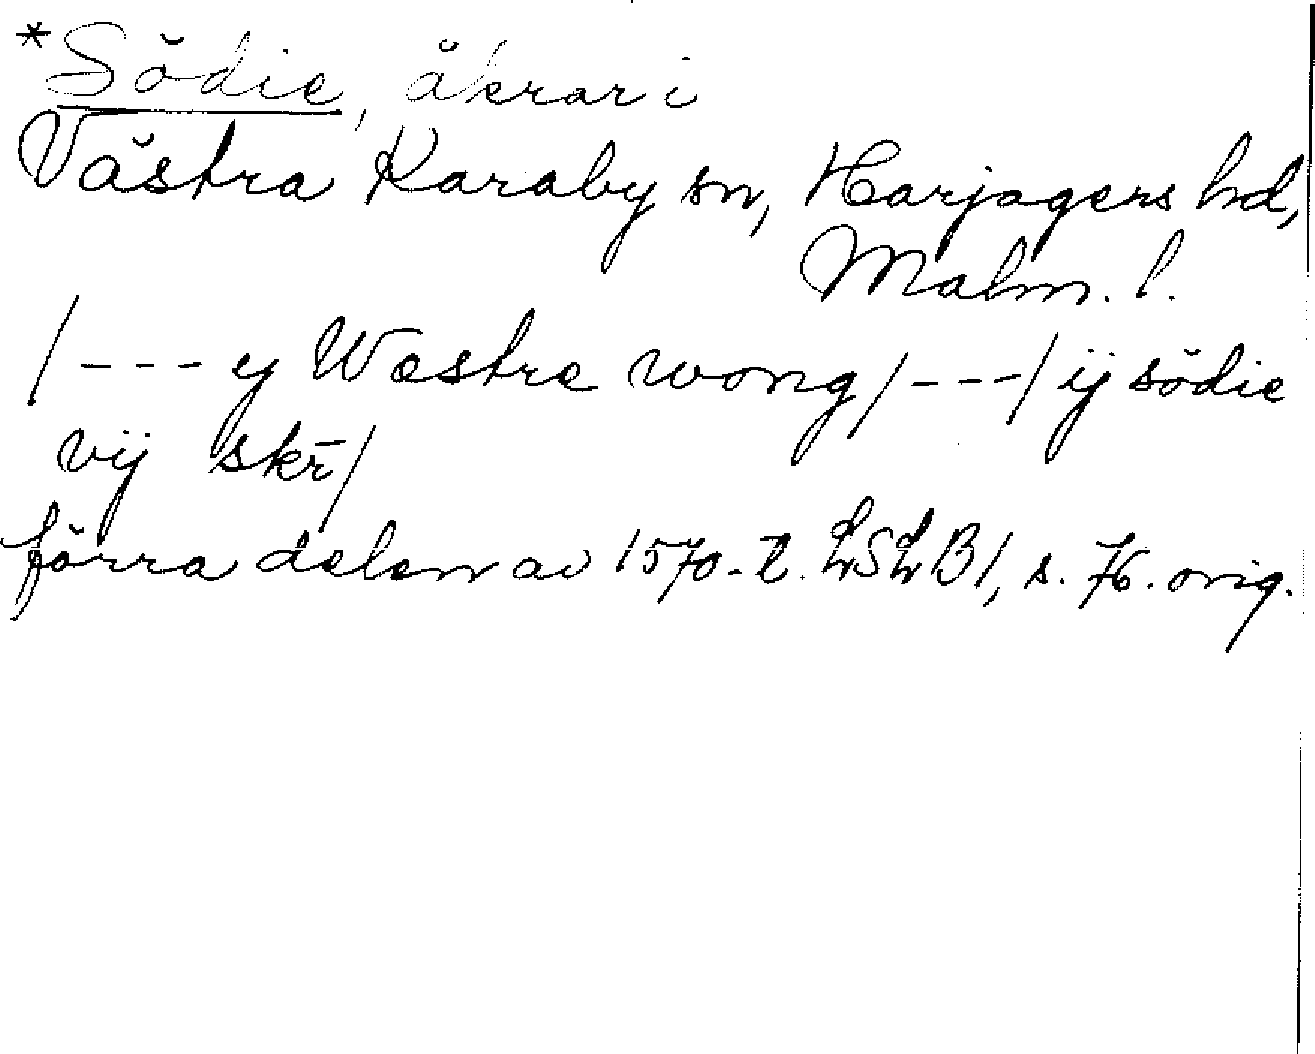 *Södie, åkrar i
Västra Karaby sn, Harjagers hd,
Malm. l.
/--- ij Westre wong/---/ ij södie
vij skr̄/
förra delen av 1570-t. LSLB1, s. 76. orig.